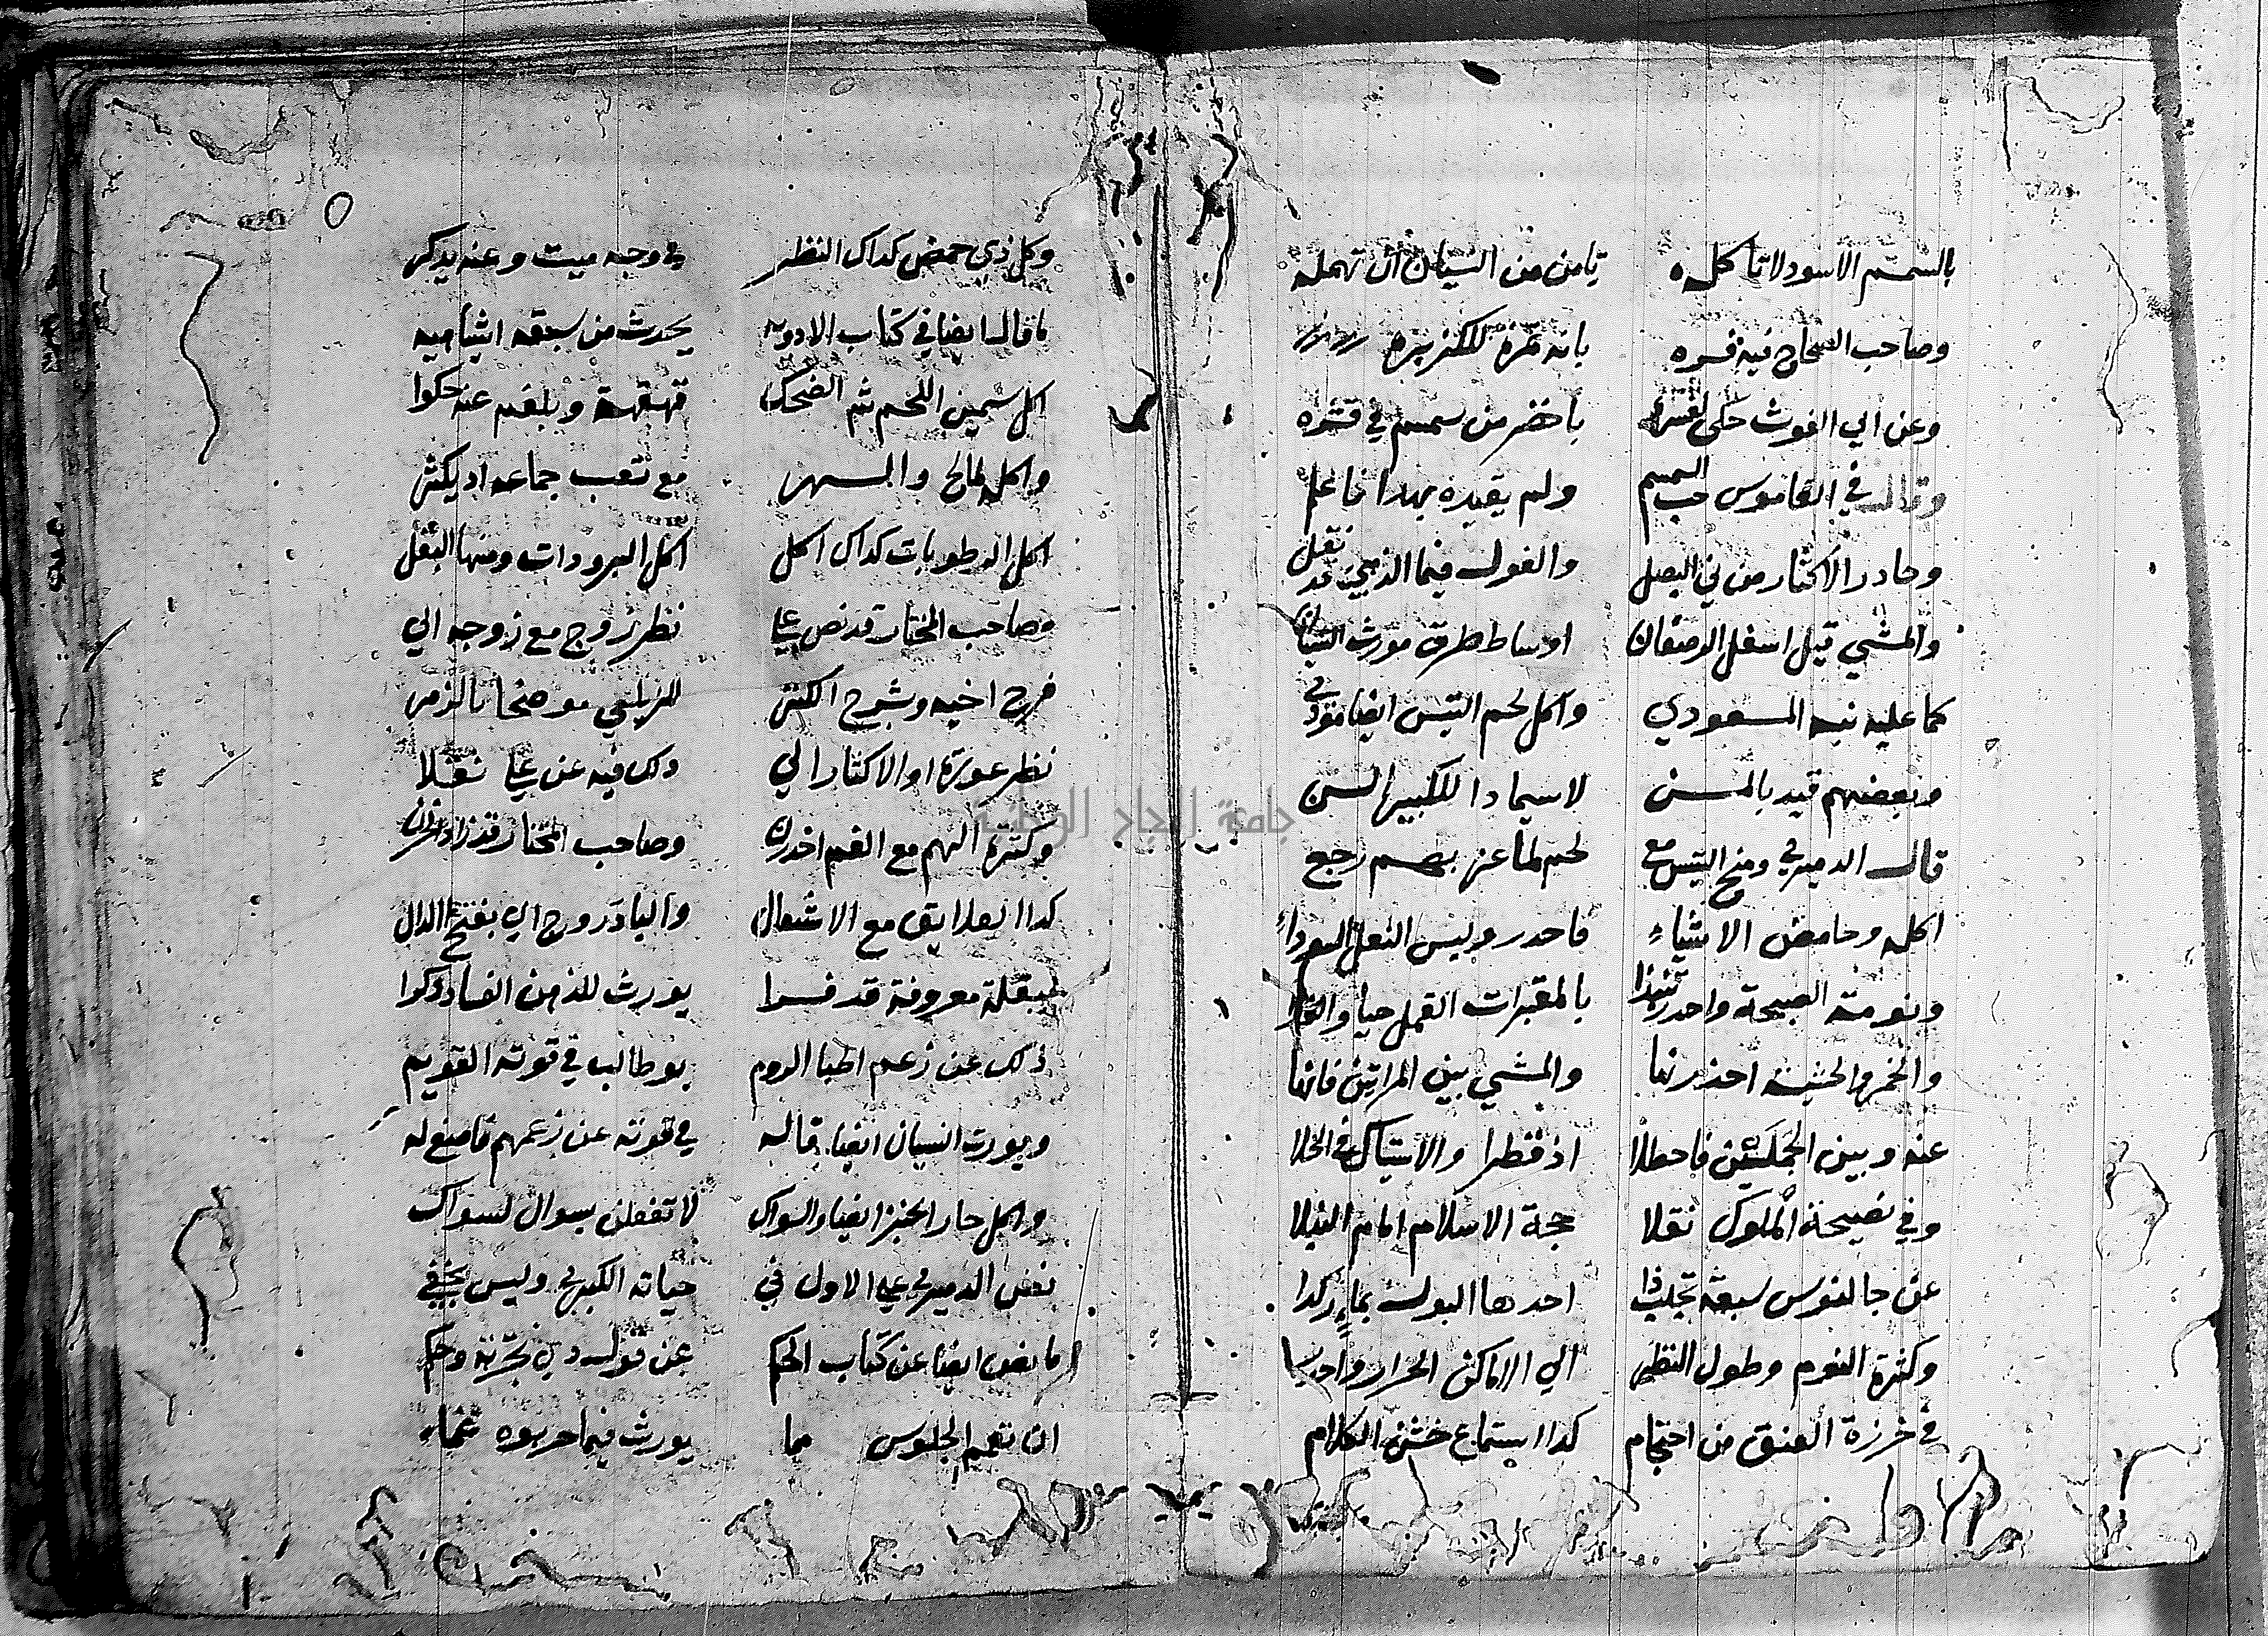 بالسمسم الاسود لا تاكله تامن من النسيان ان تهمله
وصاحب الصحاح فيه فسره بانه ثمرة للكزبره
وعن ابي الغوث حكى باخضر من سمسم في قشره
وقال في القاموس حب السمسم ولم يقيده بهذا فاعلم
وحاذر الاكثار من ني البصل والفول فيما الذهبي عنه نقل
والمشي قيل اسفل الرصفان اوساط طرق مورث النسيان
كما عليه نبه المسعودي واكل لحم التيس ايضا مودي
وبعضهم قيد بالمسن لاسيما ذا للكبير السن
قال الدميري ومخ التيس مع لحم لماعز بهم رجع
اكله وحامض الاشياء فاحذر ولبس النعل السوداء
ونومة الصبيحة واحذر بالمقبرات القمل حيا
والخمر والحشيشة احذرنها والمشي بين المراتين فانها
عنه وبين الجملين فاحظلا اذ قطرا والاستياك في الخلا
وفي نصيحة الملوك نقلا حجة الاسلام امام النبلا
عن جالنوس سبعة تجلب ذا احدها البول بماء ركدا
وكثرة النوم وطول النظر الي الاماكن الحرار
في خرزة العنق من احتجام كذا استماع خشن الكلام
وكل ذي حمض كذاك النظر في وجه ميت وعنه يذكر
ما قاله ايضا في كتاب الادويه يحدث من سبعة اشيا هيه
اكل سمين اللحم ثم الضحك قهقهة وبلغم عنه حكوا
واكله لمالح والسهر مع تعب جماعه اذ يكثر
اكل الرطوبات كذاك اكل اكل البرودات ومنها البقل
وصاحب المختار قد نص علي نظر زوج مع زوجه الي
فرج اخيه وشرح الكنز للزيلعي موضحا بالرمز
نظر عورة او الاكثار الي ذلك فيه عن علي نقلا
وكثرة الهم مع الغم احذرن وصاحب المختار قد زاد الحزن
كذا العلايق مع الاشغال والباذروج اي بفتح الدال
لبقلة معروفة قد فسرا يورث للذهن الفساد ذكرا
ذلك عن زعم اطبا الروم بو طالب في قوته القويم
ويورث النسيان ايضا قاله في قوته عن زعمهم فاصغ له
واكل حار الخبز ايضا والسواك لا تغفلن بسوال لسواك
نص الدميري علي الاول في حياته الكبري وليس بخفي
ما نص ايضا عن كتاب الحكم عن قول ذي تجربة وحكم
ان نعم الجلوس مما يورث فيما جربوه